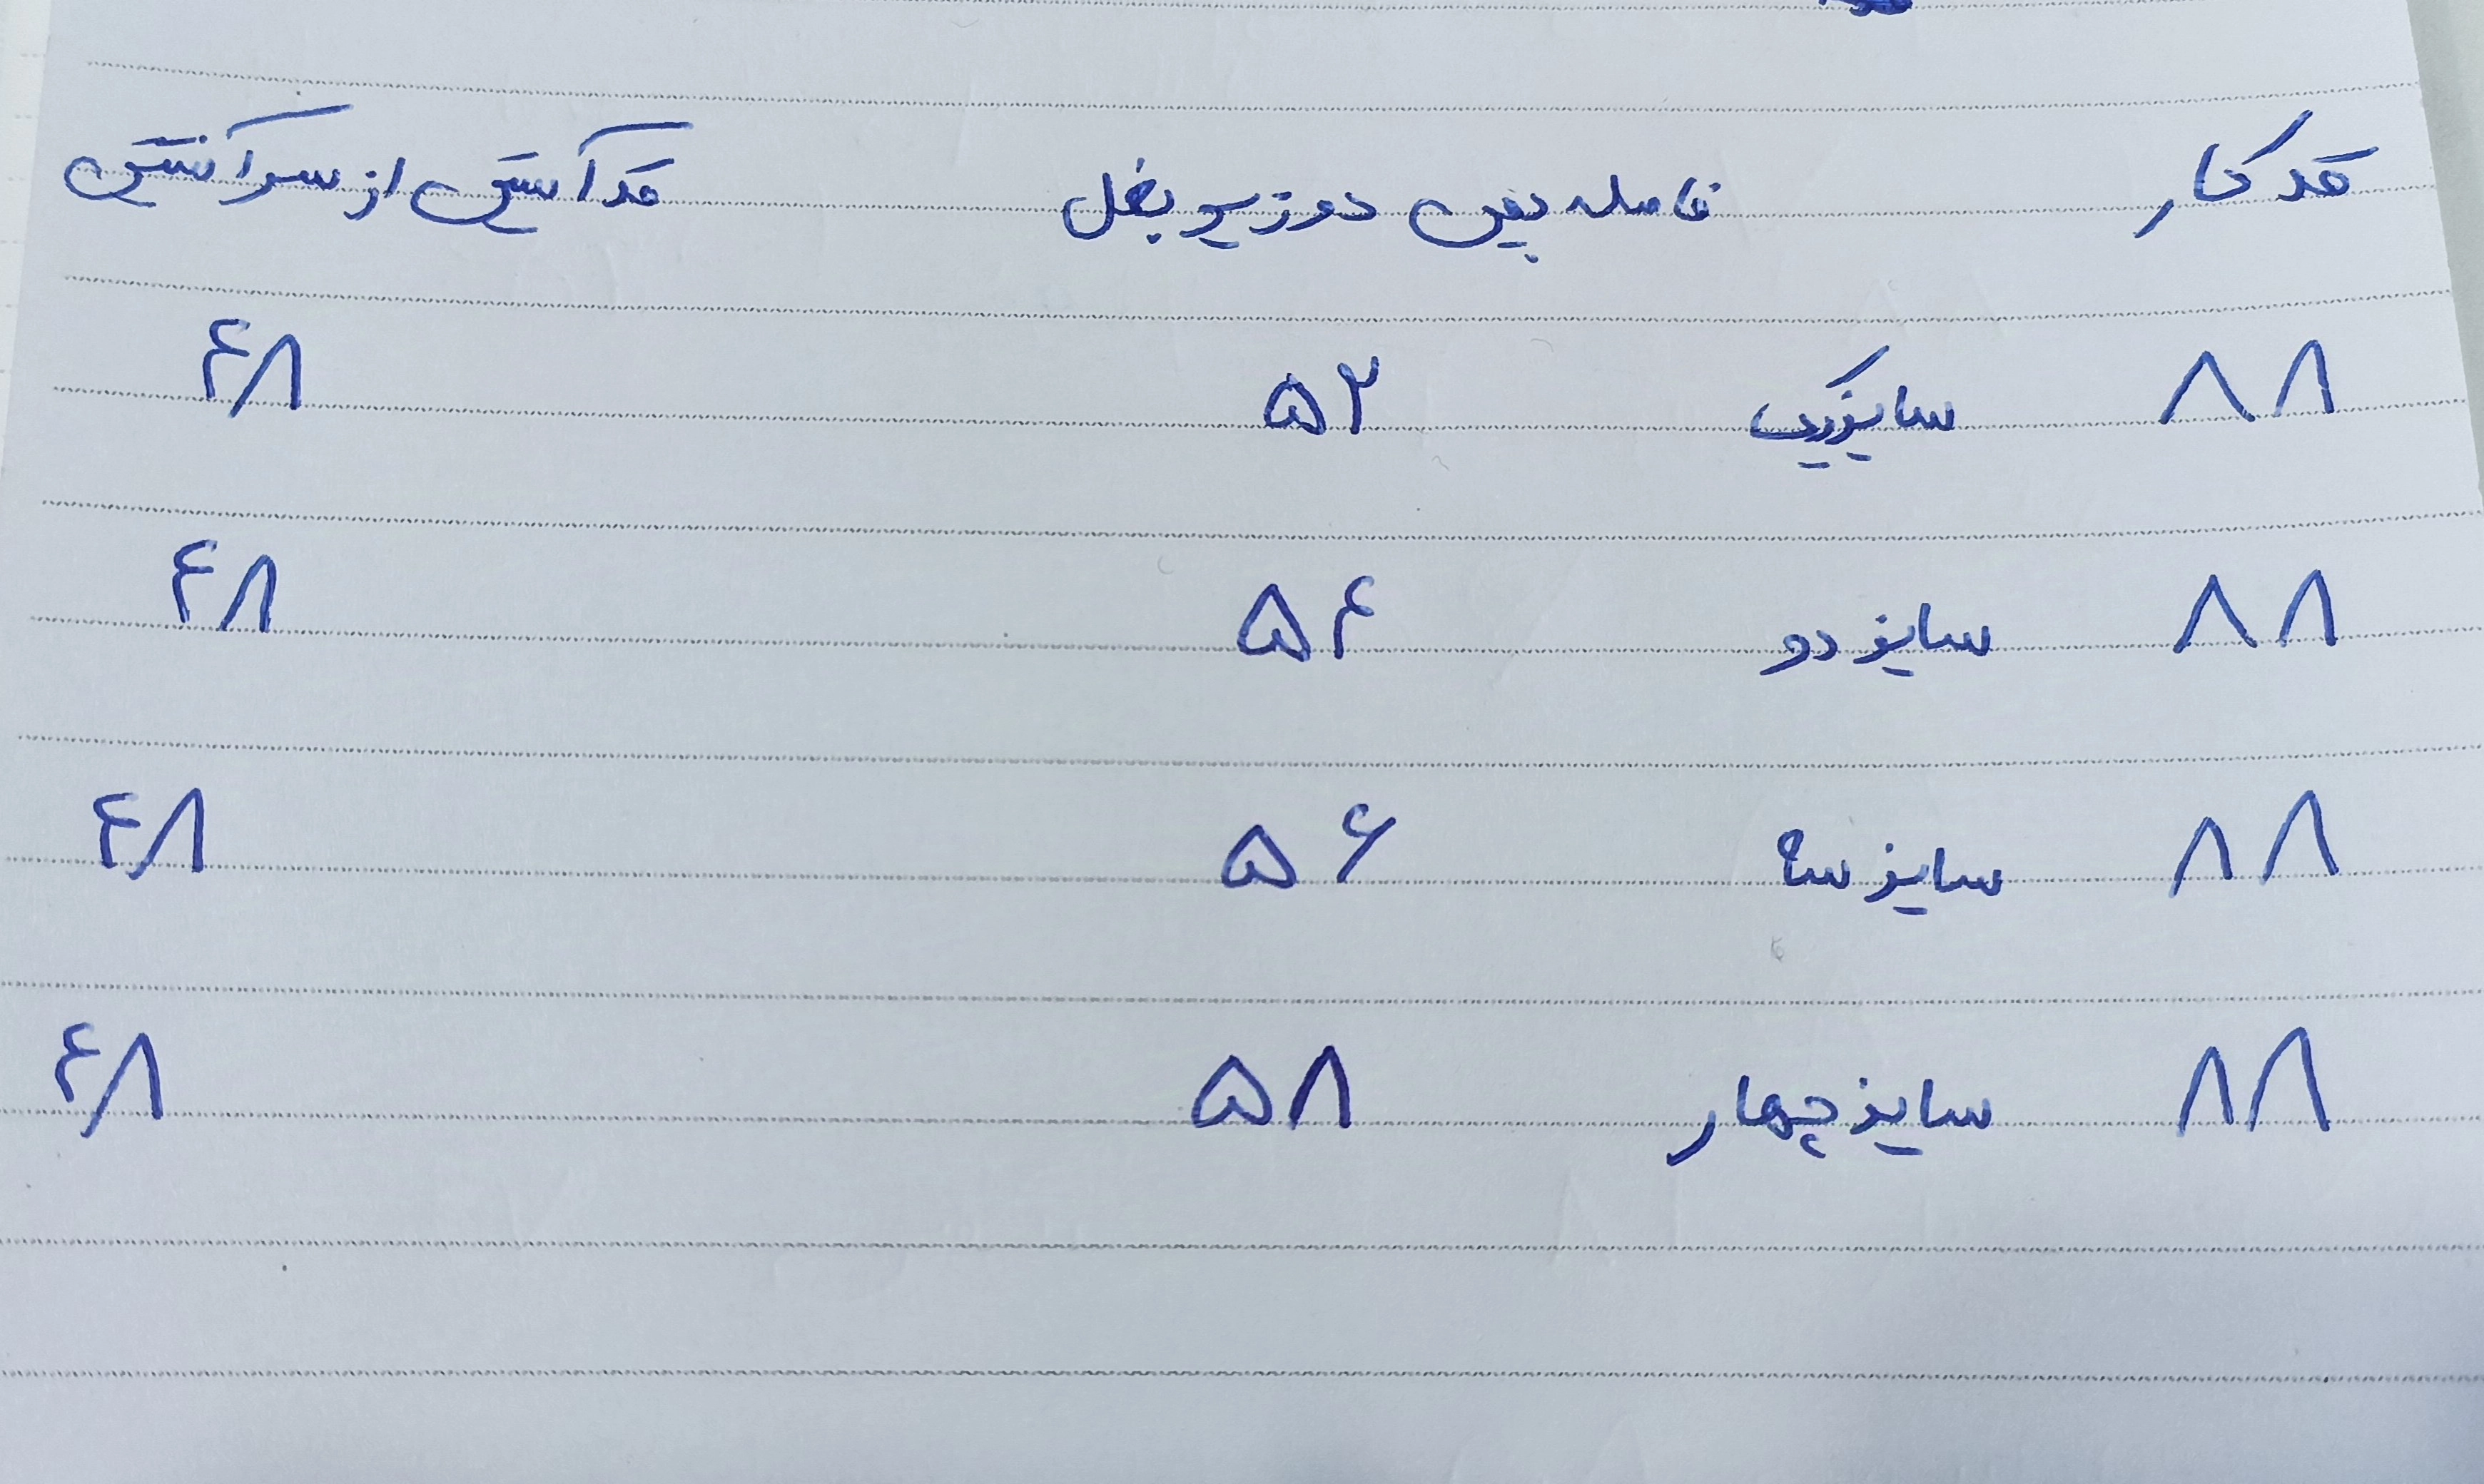 قد کار فاصله بین دو زیر بغل قد آستین از سر آستین
۸۸ سایز یک ۵۲ ۴۸
۸۸ سایز دو ۵۴ ۴۸
۸۸ سایز سه ۵۶ ۴۸
۸۸ سایز چهار ۵۸ ۴۸